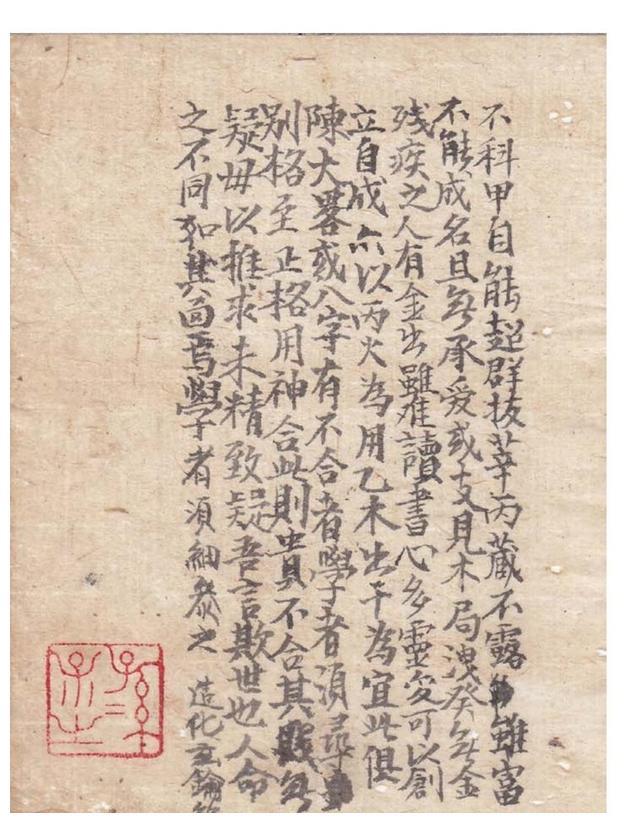 不科甲自能超群拔萃丙藏不露雖富
不能成名且無承受或支見木局洩癸無金
残疾之人有金出雖難讀書心多靈变可以創
立自成六以丙火為用乙木出干為宜此俱
陳大畧或八字有不合者學者須尋
別格至正格用神合此則貴不合其賤無
疑毋以推求未精致疑吾言欺世也人命
之不同如其面焉學者須細參之 造化玄鑰